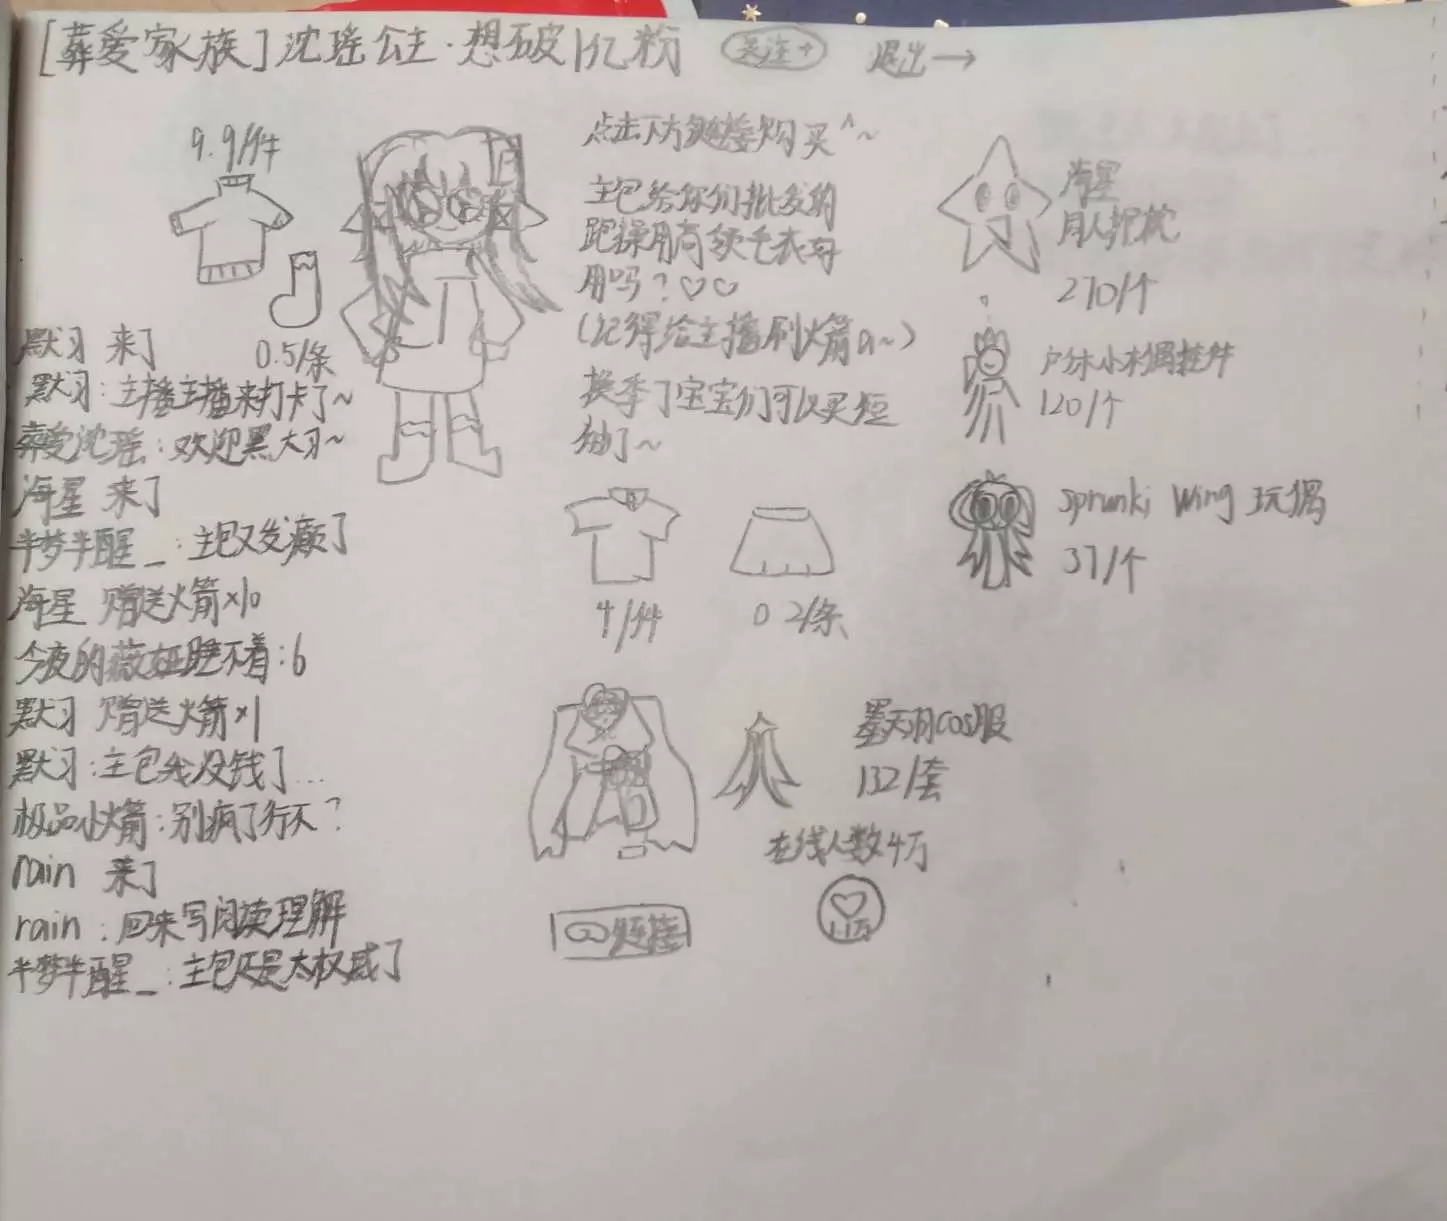 [葬爱家族]沈瑶公主·想破1亿粉 关注+ 退出→
9.9/件
0.5/条
点击下方链接购买^~
主包给你们批发的
跟操用奇袜毛衣好
用吗?♡♡
(记得给主播刷火箭a~)
换季了宝宝们可以买短
袖了~
4/件
0.2/条
海星
真人抱枕
270/个
小木偶挂件
120/个
sprunki Wing 玩偶
37/个
默习 来了
默习:主播主播来打卡了~
葬爱沈瑶:欢迎黑犬习~
海星 来了
半梦半醒_:主包又发癫了
海星 赠送火箭×10
今夜的薇娅睡不着:6
默习 赠送火箭×1
默习:主包我没钱了...
极品小火箭:别疯了行不?
rain 来了
rain:回来写阅读理解
半梦半醒_:主包还是太权威了
墨天羽cos服
132/套
在线人数4万
链接
♡
1.1万